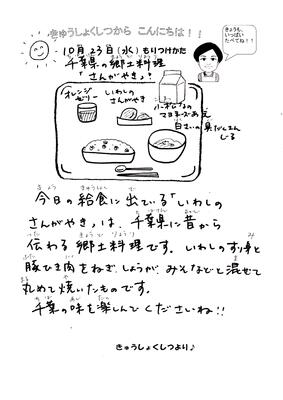 きゅうしょくしつから こんにちは！！
きょうも、
いっぱい
たべてね！！
10月23日(水) もりつけかた
千葉県の郷土料理
「さんがやき」！
オレンジ
ゼリー
いわしの
さんがやき
マヨネーズあえ
白さいの奥だくさん
じる
今日の給食に出ている「いわしの
さんがやき」は、千葉県に昔から
伝わる郷土料理です。いわしのすり身と
豚ひき肉をねぎ、しょうが、みそなどと混ぜて
丸めて焼いたものです。
千葉の味を楽しんでくださいね！！
きゅうしょくしつより♪